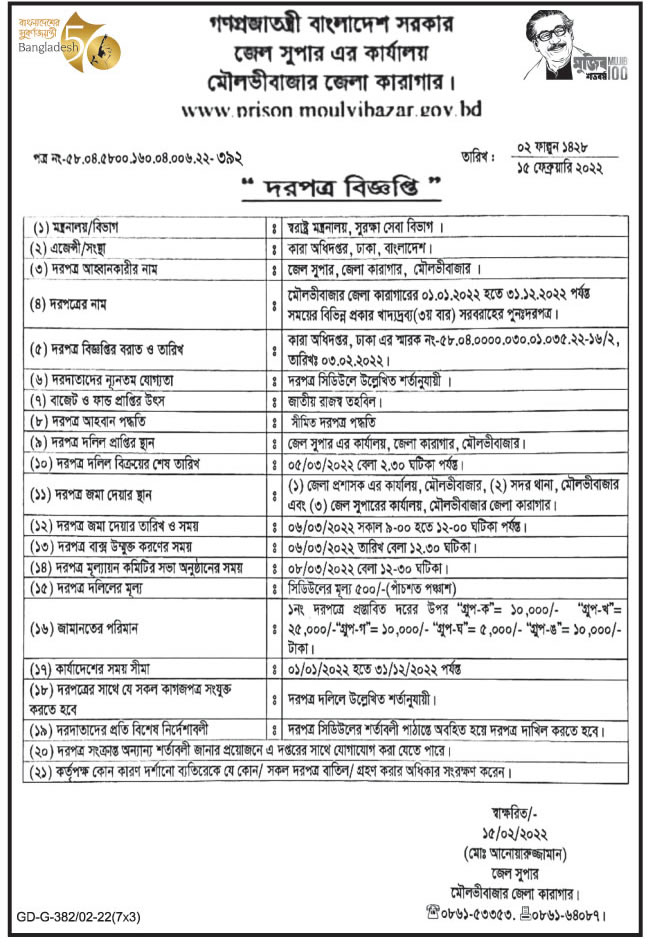 বাংলাদেশের
সুবর্ণজয়ন্তী
Bangladesh 50
গণপ্রজাতন্ত্রী বাংলাদেশ সরকার
জেল সুপার এর কার্যালয়
মৌলভীবাজার জেলা কারাগার।
www.prison moulvibazar.gov.bd
মুজিব
শতবর্ষ
MUJIB
100
পত্র নং-৫৮.০৪.৫৮০০.১৬০.০৪.০০৬.২২-৩৯২
তারিখ :
০২ ফাল্গুন ১৪২৮
১৫ ফেব্রুয়ারি ২০২২
“ দরপত্র বিজ্ঞপ্তি ”
(১) মন্ত্রনালয়/বিভাগ ঃ স্বরাষ্ট্র মন্ত্রনালয়, সুরক্ষা সেবা বিভাগ ।
(২) এজেন্সী/সংস্থা ঃ কারা অধিদপ্তর, ঢাকা, বাংলাদেশ।
(৩) দরপত্র আহ্বানকারীর নাম ঃ জেল সুপার, জেলা কারাগার, মৌলভীবাজার ।
(৪) দরপত্রের নাম ঃ মৌলভীবাজার জেলা কারাগারের ০১.০১.২০২২ হতে ৩১.১২.২০২২ পর্যন্ত
সময়ের বিভিন্ন প্রকার খাদ্যদ্রব্য(৩য় বার) সরবরাহের পুনঃদরপত্র।
(৫) দরপত্র বিজ্ঞপ্তির বরাত ও তারিখ ঃ কারা অধিদপ্তর, ঢাকা এর স্মারক নং-৫৮.০৪.০০০০.০৩০.০১.০৩৫.২২-১৬/২,
তারিখঃ ০৩.০২.২০২২।
(৬) দরদাতাদের ন্যূনতম যোগ্যতা ঃ দরপত্র সিডিউলে উল্লেখিত শর্তানুযায়ী ।
(৭) বাজেট ও ফান্ড প্রাপ্তির উৎস ঃ জাতীয় রাজস্ব তহবিল।
(৮) দরপত্র আহবান পদ্ধতি ঃ সীমিত দরপত্র পদ্ধতি
(৯) দরপত্র দলিল প্রাপ্তির স্থান ঃ জেল সুপার এর কার্যালয়, জেলা কারাগার, মৌলভীবাজার।
(১০) দরপত্র দলিল বিক্রয়ের শেষ তারিখ ঃ ০৫/০৩/২০২২ বেলা ২.৩০ ঘটিকা পর্যন্ত।
(১১) দরপত্র জমা দেয়ার স্থান ঃ (১) জেলা প্রশাসক এর কার্যালয়, মৌলভীবাজার, (২) সদর থানা, মৌলভীবাজার
এবং (৩) জেল সুপারের কার্যালয়, মৌলভীবাজার জেলা কারাগার।
(১২) দরপত্র জমা দেয়ার তারিখ ও সময় ঃ ০৬/০৩/২০২২ সকাল ৯-০০ হতে ১২-০০ ঘটিকা পর্যন্ত।
(১৩) দরপত্র বাক্স উন্মুক্ত করণের সময় ঃ ০৬/০৩/২০২২ তারিখ বেলা ১২.৩০ ঘটিকা।
(১৪) দরপত্র মূল্যায়ন কমিটির সভা অনুষ্ঠানের সময় ঃ ০৮/০৩/২০২২ বেলা ১২-৩০ ঘটিকা।
(১৫) দরপত্র দলিলের মূল্য ঃ সিডিউলের মূল্য ৫০০/-(পাঁচশত পঞ্চাশ)
(১৬) জামানতের পরিমান ঃ ১নং দরপত্রে প্রস্তাবিত দরের উপর “গ্রুপ-ক”= ১০,০০০/- “গ্রুপ-খ”=
২৫,০০০/-“গ্রুপ-গ”= ১০,০০০/- “গ্রুপ-ঘ”= ৫,০০০/- “গ্রুপ-ঙ”= ১০,০০০/-
টাকা।
(১৭) কার্যাদেশের সময় সীমা ঃ ০১/০১/২০২২ হতে ৩১/১২/২০২২ পর্যন্ত
(১৮) দরপত্রের সাথে যে সকল কাগজপত্র সংযুক্ত
করতে হবে ঃ দরপত্র দলিলে উল্লেখিত শর্তানুযায়ী।
(১৯) দরদাতাদের প্রতি বিশেষ নির্দেশাবলী ঃ দরপত্র সিডিউলের শর্তাবলী পাঠান্তে অবহিত হয়ে দরপত্র দাখিল করতে হবে।
(২০) দরপত্র সংক্রান্ত অন্যান্য শর্তাবলী জানার প্রয়োজনে এ দপ্তরের সাথে যোগাযোগ করা যেতে পারে।
(২১) কর্তৃপক্ষ কোন কারণ দর্শানো ব্যতিরেকে যে কোন/ সকল দরপত্র বাতিল/ গ্রহণ করার অধিকার সংরক্ষণ করেন।
স্বাক্ষরিত/-
১৫/০২/২০২২
(মোঃ আনোয়ারুজ্জামান)
জেল সুপার
মৌলভীবাজার জেলা কারাগার।
☎০৮৬১-৫৩৩৫৩. 🖷০৮৬১-৬৪০৮৭।
GD-G-382/02-22(7x3)